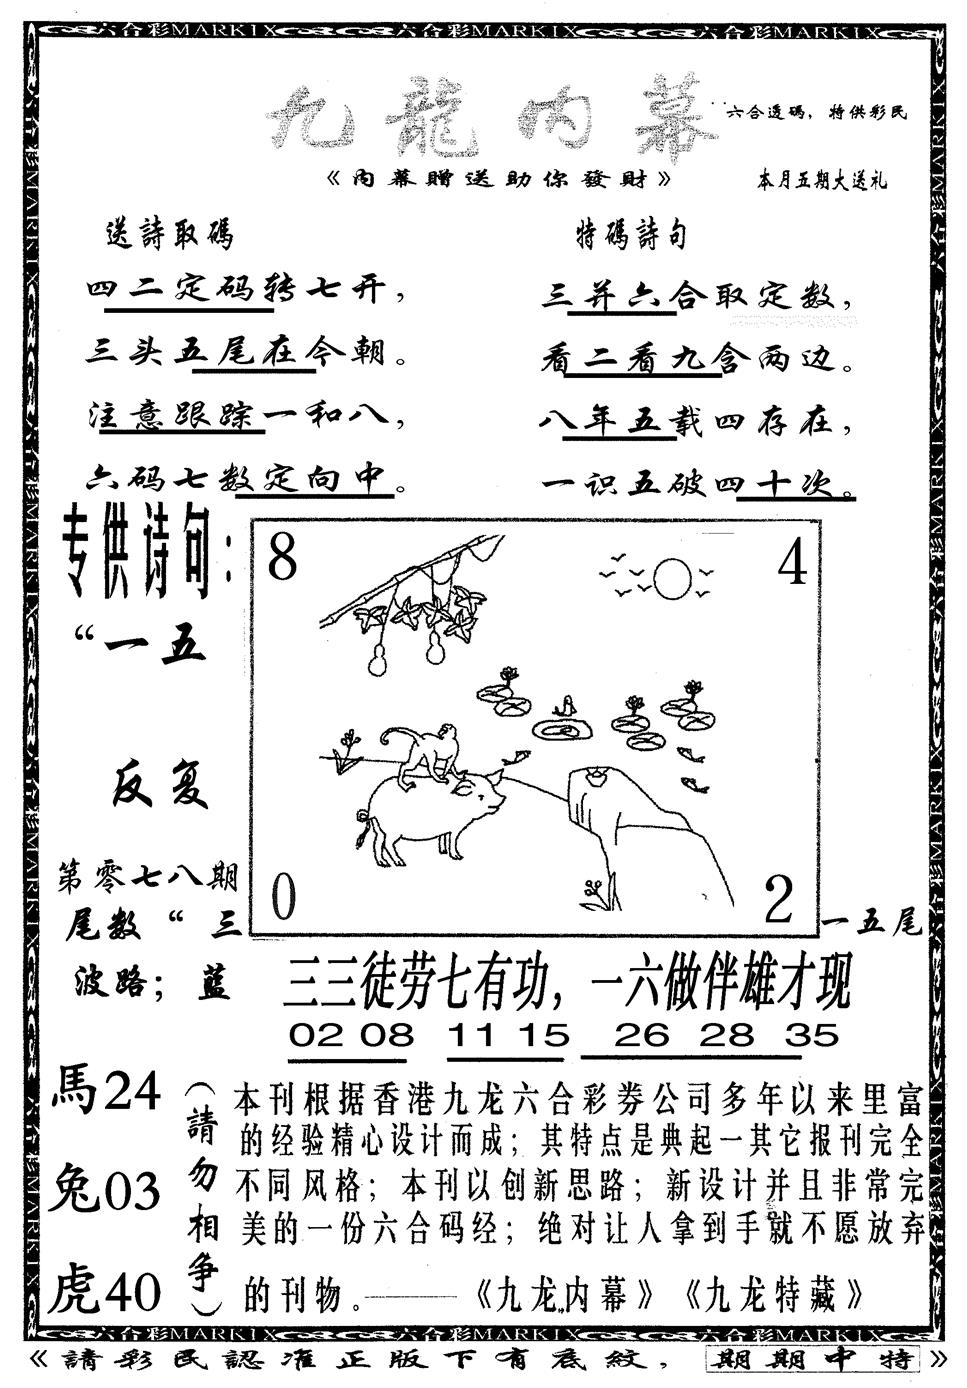 六合彩MARKIX 六合彩MARKIX 六合彩MARKIX
九龍内幕
六合透码，特供彩民
《内幕赠送助你發財》
本月五期大送礼
送詩取碼
四二定码转七开，
三头五尾在今朝。
注意跟踪一和八，
六码七数定向中。
特碼詩句
三并六合取定数，
看二看九含两边。
八年五载四存在，
一识五破四十次。
专供诗句：
“一五
反复
第零七八期
尾数“三
一五尾
波路；蓝
8
4
0
2
三三徒劳七有功，一六做伴雄才现
02 08 11 15 26 28 35
馬24
兔03
虎40
（請勿相争）
本刊根据香港九龙六合彩券公司多年以来里富
的经验精心设计而成；其特点是典起一其它报刊完全
不同风格；本刊以创新思路；新设计并且非常完
美的一份六合码经；绝对让人拿到手就不愿放弃
的刊物。———《九龙内幕》《九龙特藏》
六合彩MARKIX 六合彩MARKIX 六合彩MARKIX
《請彩民認准正版下有底紋，期期中特》